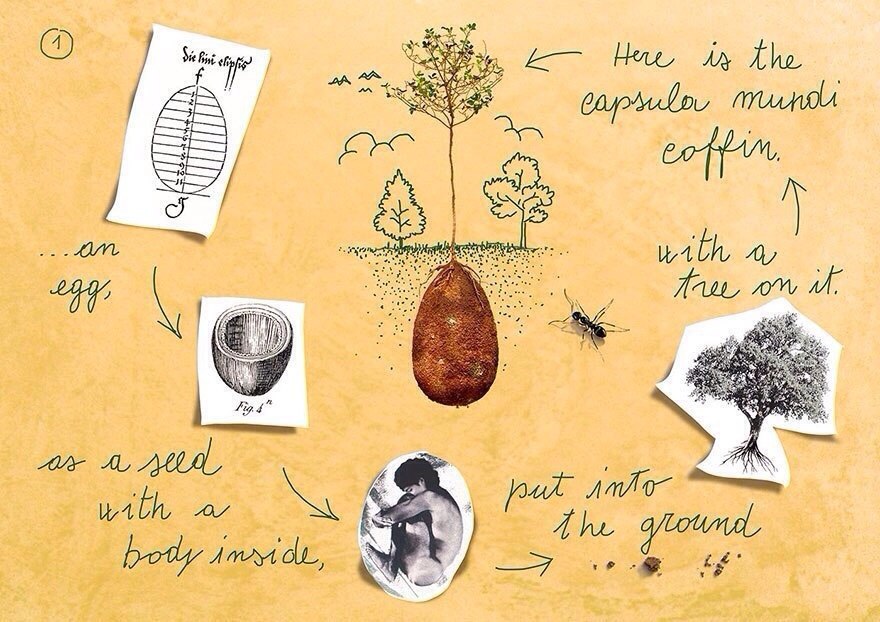 1
die lini elipsis
f
1
2
3
4
5
6
7
8
9
10
11
g
...an
egg,
Fig. 4ª
as a seed
with a
body inside,
put into
the ground
with a
tree on it.
Here is the
capsula mundi
coffin.